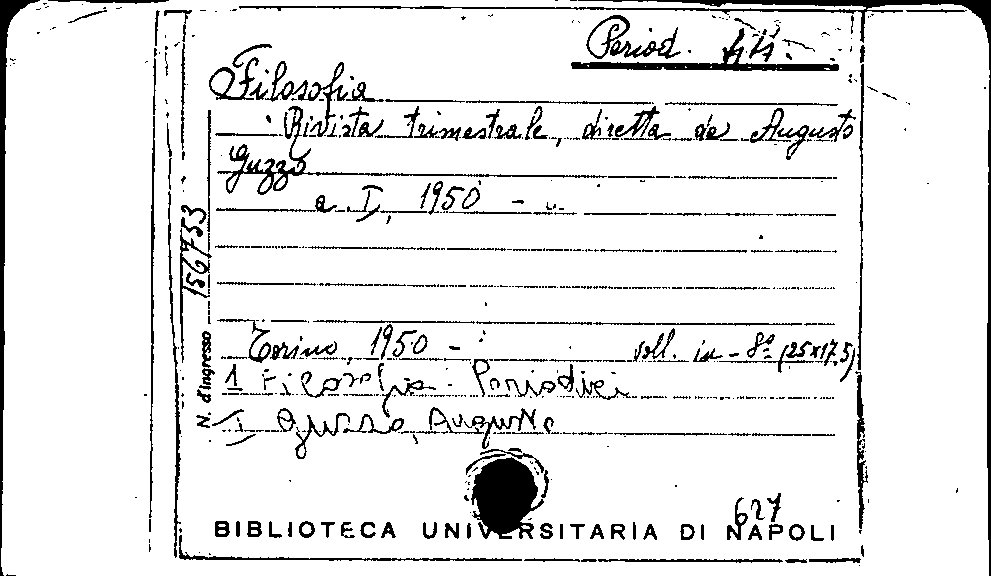 Period. 44.
Filosofia
Rivista trimestrale, diretta da Augusto
Guzzo
a. I, 1950 -
156753
N. d'ingresso
Torino, 1950 - voll. in-8º (25x17,5)
1 Filosofia - Periodici
I Guzzo, Augusto
627
BIBLIOTECA UNIVERSITARIA DI NAPOLI